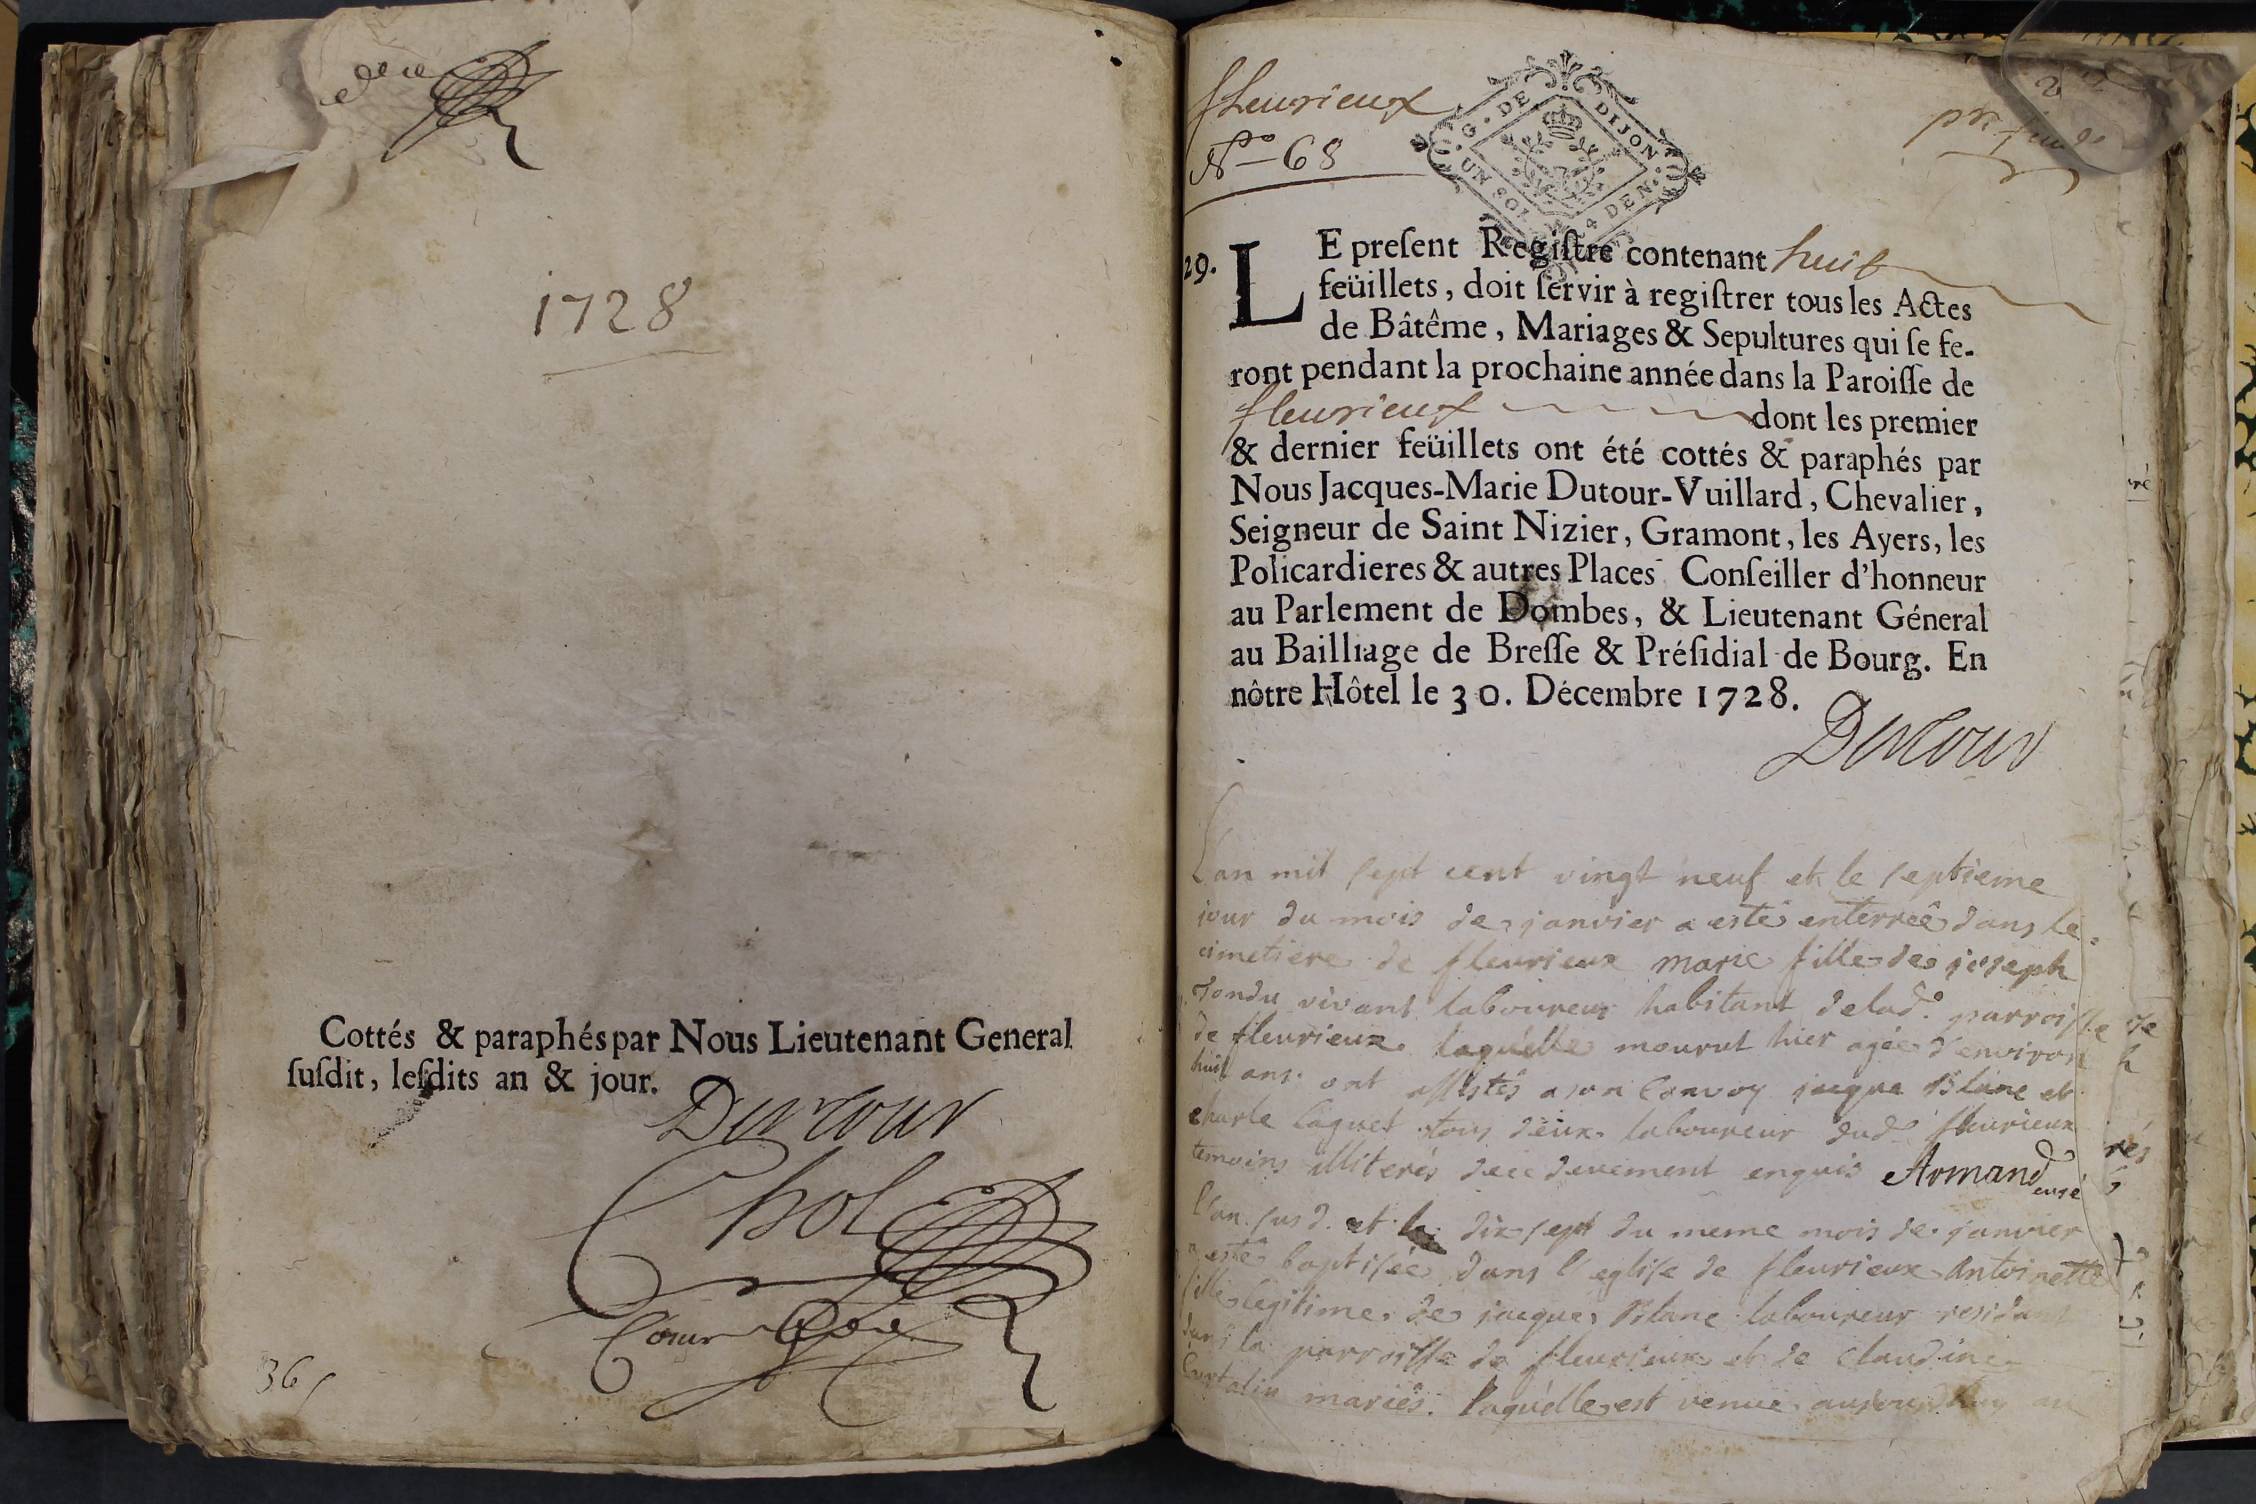 1728
Cottés & paraphés par Nous Lieutenant General
susdit, lesdits an & jour.
Dutour
Chol
36
fleurieux
N° 68
G. DE DIJON
UN SOL 4 DEN.
29.
LE present Registre contenant huit
feüillets, doit servir à registrer tous les Actes
de Bâtême, Mariages & Sepultures qui se fe-
ront pendant la prochaine année dans la Paroisse de
fleurieux dont les premier
& dernier feüillets ont été cottés & paraphés par
Nous Jacques-Marie Dutour-Vuillard, Chevalier,
Seigneur de Saint Nizier, Gramont, les Ayers, les
Policardieres & autres Places Conseiller d'honneur
au Parlement de Dombes, & Lieutenant Géneral
au Bailliage de Bresse & Présidial de Bourg. En
nôtre Hôtel le 30. Décembre 1728.
Dutour
L'an mil sept cent vingt neuf et le septieme
jour du mois de janvier a esté enterreê dans le
cimetiere de fleurieux marie fille de joseph
vivant laboureur habitant delad. parroisse
de fleurieux laquelle mourut hier agée d'environ
huit ans. ont assistés a son convoy jacque Blanc et
charle tous deux laboureur dud fleurieux
temoins illiterés de ce deuement enquis Armand
curé
l'an susd. et le dix sept du meme mois de janvier
a esté baptisée dans l'eglise de fleurieux Antoinette
fille legitime de jacque Blanc laboureur residant
dans la parroisse de fleurieux et de claudine
mariés. laquelle est venue aujourdhuy au